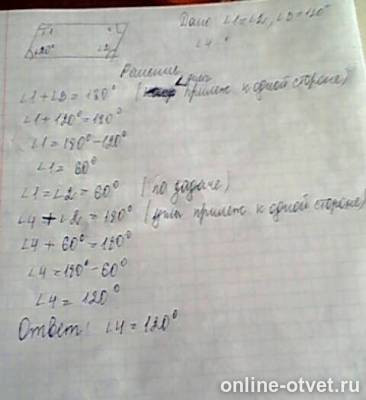 Дано: ∠1=∠2, ∠3=120°
∠4
∠1
120°
∠2
Решение
∠1+∠3=180° (углы прилеж к одной стороне)
∠1+120°=180°
∠1=180°-120°
∠1=60°
∠1=∠2=60° (по задаче)
∠4+∠2=180° (углы прилеж к одной стороне)
∠4+60°=180°
∠4=180°-60°
∠4=120°
Ответ: ∠4=120°
online-otvet.ru